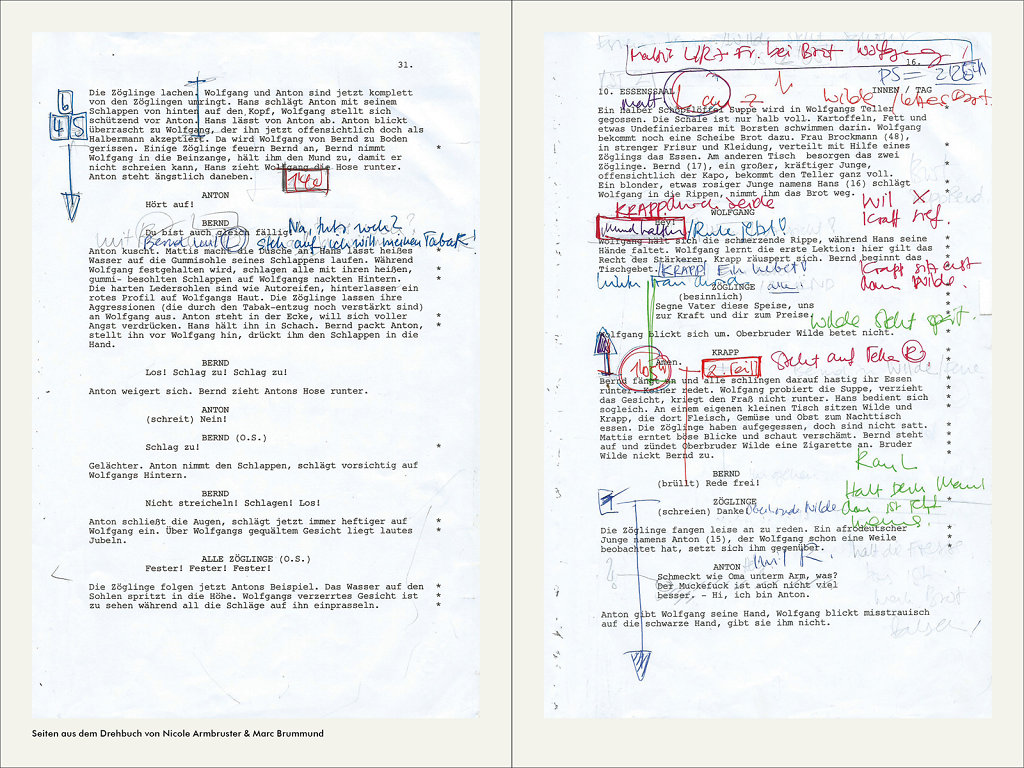 31.
Die Zöglinge lachen. Wolfgang und Anton sind jetzt komplett
von den Zöglingen umringt. Hans schlägt Anton mit seinem
Schlappen von hinten auf den Kopf, Wolfgang stellt sich
schützend vor Anton. Hans lässt von Anton ab. Anton blickt
überrascht zu Wolfgang, der ihn jetzt offensichtlich doch als
Halbermann akzeptiert. Da wird Wolfgang von Bernd zu Boden
gerissen. Einige Zöglinge feuern Bernd an, Bernd nimmt *
Wolfgang in die Beinzange, hält ihm den Mund zu, damit er
nicht schreien kann, Hans zieht Wolfgang die Hose runter.
Anton steht ängstlich daneben.
6
4 5
14e
ANTON
Hört auf!
BERND
Du bist auch gleich fällig!
Na, tut's weh?
Steh auf, ich will meinen Tabak!
Anton kuscht. Mattis macht die Dusche an. Hans lässt heißes
Wasser auf die Gummisohle eines Schlappens laufen. Während
Wolfgang festgehalten wird, schlagen alle mit ihren heißen, *
gummi- besohlten Schlappen auf Wolfgangs nackten Hintern. *
Die harten Ledersohlen sind wie Autoreifen, hinterlassen ein
rotes Profil auf Wolfgangs Haut. Die Zöglinge lassen ihre
Aggressionen (die durch den Tabak-entzug noch verstärkt sind)
an Wolfgang aus. Anton steht in der Ecke, will sich voller *
Angst verdrücken. Hans hält ihn in Schach. Bernd packt Anton, *
stellt ihn vor Wolfgang hin, drückt ihm den Schlappen in die *
Hand.
BERND
Los! Schlag zu! Schlag zu!
Anton weigert sich. Bernd zieht Antons Hose runter.
ANTON
(schreit) Nein!
BERND (O.S.)
Schlag zu! *
Gelächter. Anton nimmt den Schlappen, schlägt vorsichtig auf
Wolfgangs Hintern.
BERND
Nicht streicheln! Schlagen! Los!
Anton schließt die Augen, schlägt jetzt immer heftiger auf *
Wolfgang ein. Über Wolfgangs gequältem Gesicht liegt lautes *
Jubeln.
ALLE ZÖGLINGE (O.S.)
Fester! Fester! Fester!
Die Zöglinge folgen jetzt Antons Beispiel. Das Wasser auf den *
Sohlen spritzt in die Höhe. Wolfgangs verzerrtes Gesicht ist *
zu sehen während all die Schläge auf ihn einprasseln. *
Seiten aus dem Drehbuch von Nicole Armbruster & Marc Brummund
Fr. bei Brot Wolfgang!
16.
PS =
10. ESSENSSAAL INNEN / TAG
wilde
Ein halber Schöpflöffel Suppe wird in Wolfgangs Teller
gegossen. Die Schale ist nur halb voll. Kartoffeln, Fett und
etwas Undefinierbares mit Borsten schwimmen darin. Wolfgang
bekommt noch eine Scheibe Brot dazu. Frau Brockmann (48),
in strenger Frisur und Kleidung, verteilt mit Hilfe eines
Zöglings das Essen. Am anderen Tisch besorgen das zwei
Zöglinge. Bernd (17), ein großer, kräftiger Junge,
offensichtlich der Kapo, bekommt den Teller ganz voll.
Ein blonder, etwas rosiger Junge namens Hans (16) schlägt
Wolfgang in die Rippen, nimmt ihm das Brot weg.
WOLFGANG
KRAPP
Wolfgang hält sich die schmerzende Rippe, während Hans seine
Hände faltet. Wolfgang lernt die erste Lektion: hier gilt das
Recht des Stärkeren. Krapp räuspert sich. Bernd beginnt das
Tischgebet.
KRAPP
ZÖGLINGE
(besinnlich)
Segne Vater diese Speise, uns
zur Kraft und dir zum Preise.
wilde steht später.
Wolfgang blickt sich um. Oberbruder Wilde betet nicht.
KRAPP
Amen.
16
2. Teil
Steht auf
Bernd fängt an und alle schlingen darauf hastig ihr Essen *
runter. Keiner redet. Wolfgang probiert die Suppe, verzieht *
das Gesicht, kriegt den Fraß nicht runter. Hans bedient sich *
sogleich. An einem eigenen kleinen Tisch sitzen Wilde und *
Krapp, die dort Fleisch, Gemüse und Obst zum Nachttisch *
essen. Die Zöglinge haben aufgegessen, doch sind nicht satt. *
Mattis erntet böse Blicke und schaut verschämt. Bernd steht *
auf und zündet Oberbruder Wilde eine Zigarette an. Bruder *
Wilde nickt Bernd zu. *
BERND
(brüllt) Rede frei!
ZÖGLINGE
(schreien) Danke!
Halt dein Maul
das ist jetzt
meins.
Die Zöglinge fangen leise an zu reden. Ein afrodeutscher *
Junge namens Anton (15), der Wolfgang schon eine Weile *
beobachtet hat, setzt sich ihm gegenüber. *
ANTON
Schmeckt wie Oma unterm Arm, was?
Der Muckefuck ist auch nicht viel
besser. – Hi, ich bin Anton.
Anton gibt Wolfgang seine Hand, Wolfgang blickt misstrauisch
auf die schwarze Hand, gibt sie ihm nicht.